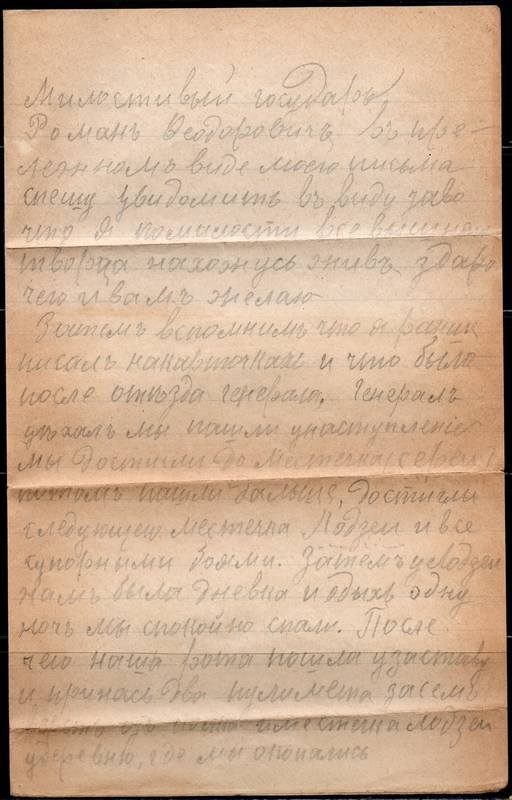 Милостивый государь
Романъ Феодоровичъ въ пре-
лезнномъ виде моею письма
спешу увидомить въ виду заво
что я помилости все вышнаго
творца нахожусь живъ здаро
чего и вамъ желаю
Затемъ вспомнимъ что я раник
писалъ накарточкахъ и что было
после отъезда генерала. Генералъ
уехалъ мы пашли унаступление
мы достигли до местечка
потомъ пашли дальше, достигли
следующею местечка Лодзеи и все
супорными боями. Затемъ у Лодзеи
намъ была дневка и отдыхъ одну
ночь мы спокойно спали. После
чего наша рота пошла узаставу
и принасъ два пулимета засемъ
местечка Лодзеи
удеревню, где мы окопались